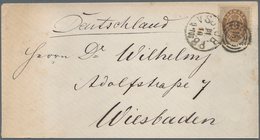 Deutschland
Herrn Dr Wilhelmj
Adolfstraße 7
Wiesbaden